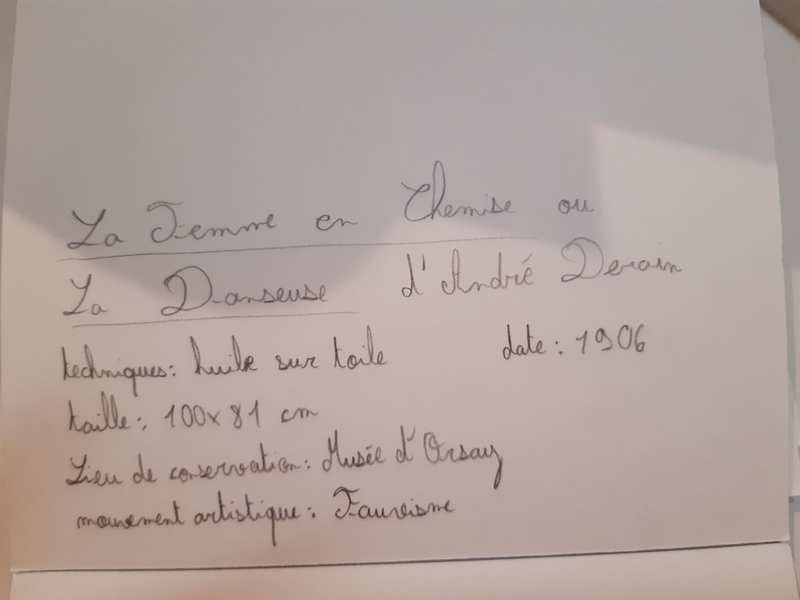 La Femme en Chemise ou
La Danseuse d'André Derain
techniques: huile sur toile date: 1906
taille: 100x81 cm
Lieu de conservation: Musée d'Orsay
mouvement artistique: Fauvisme